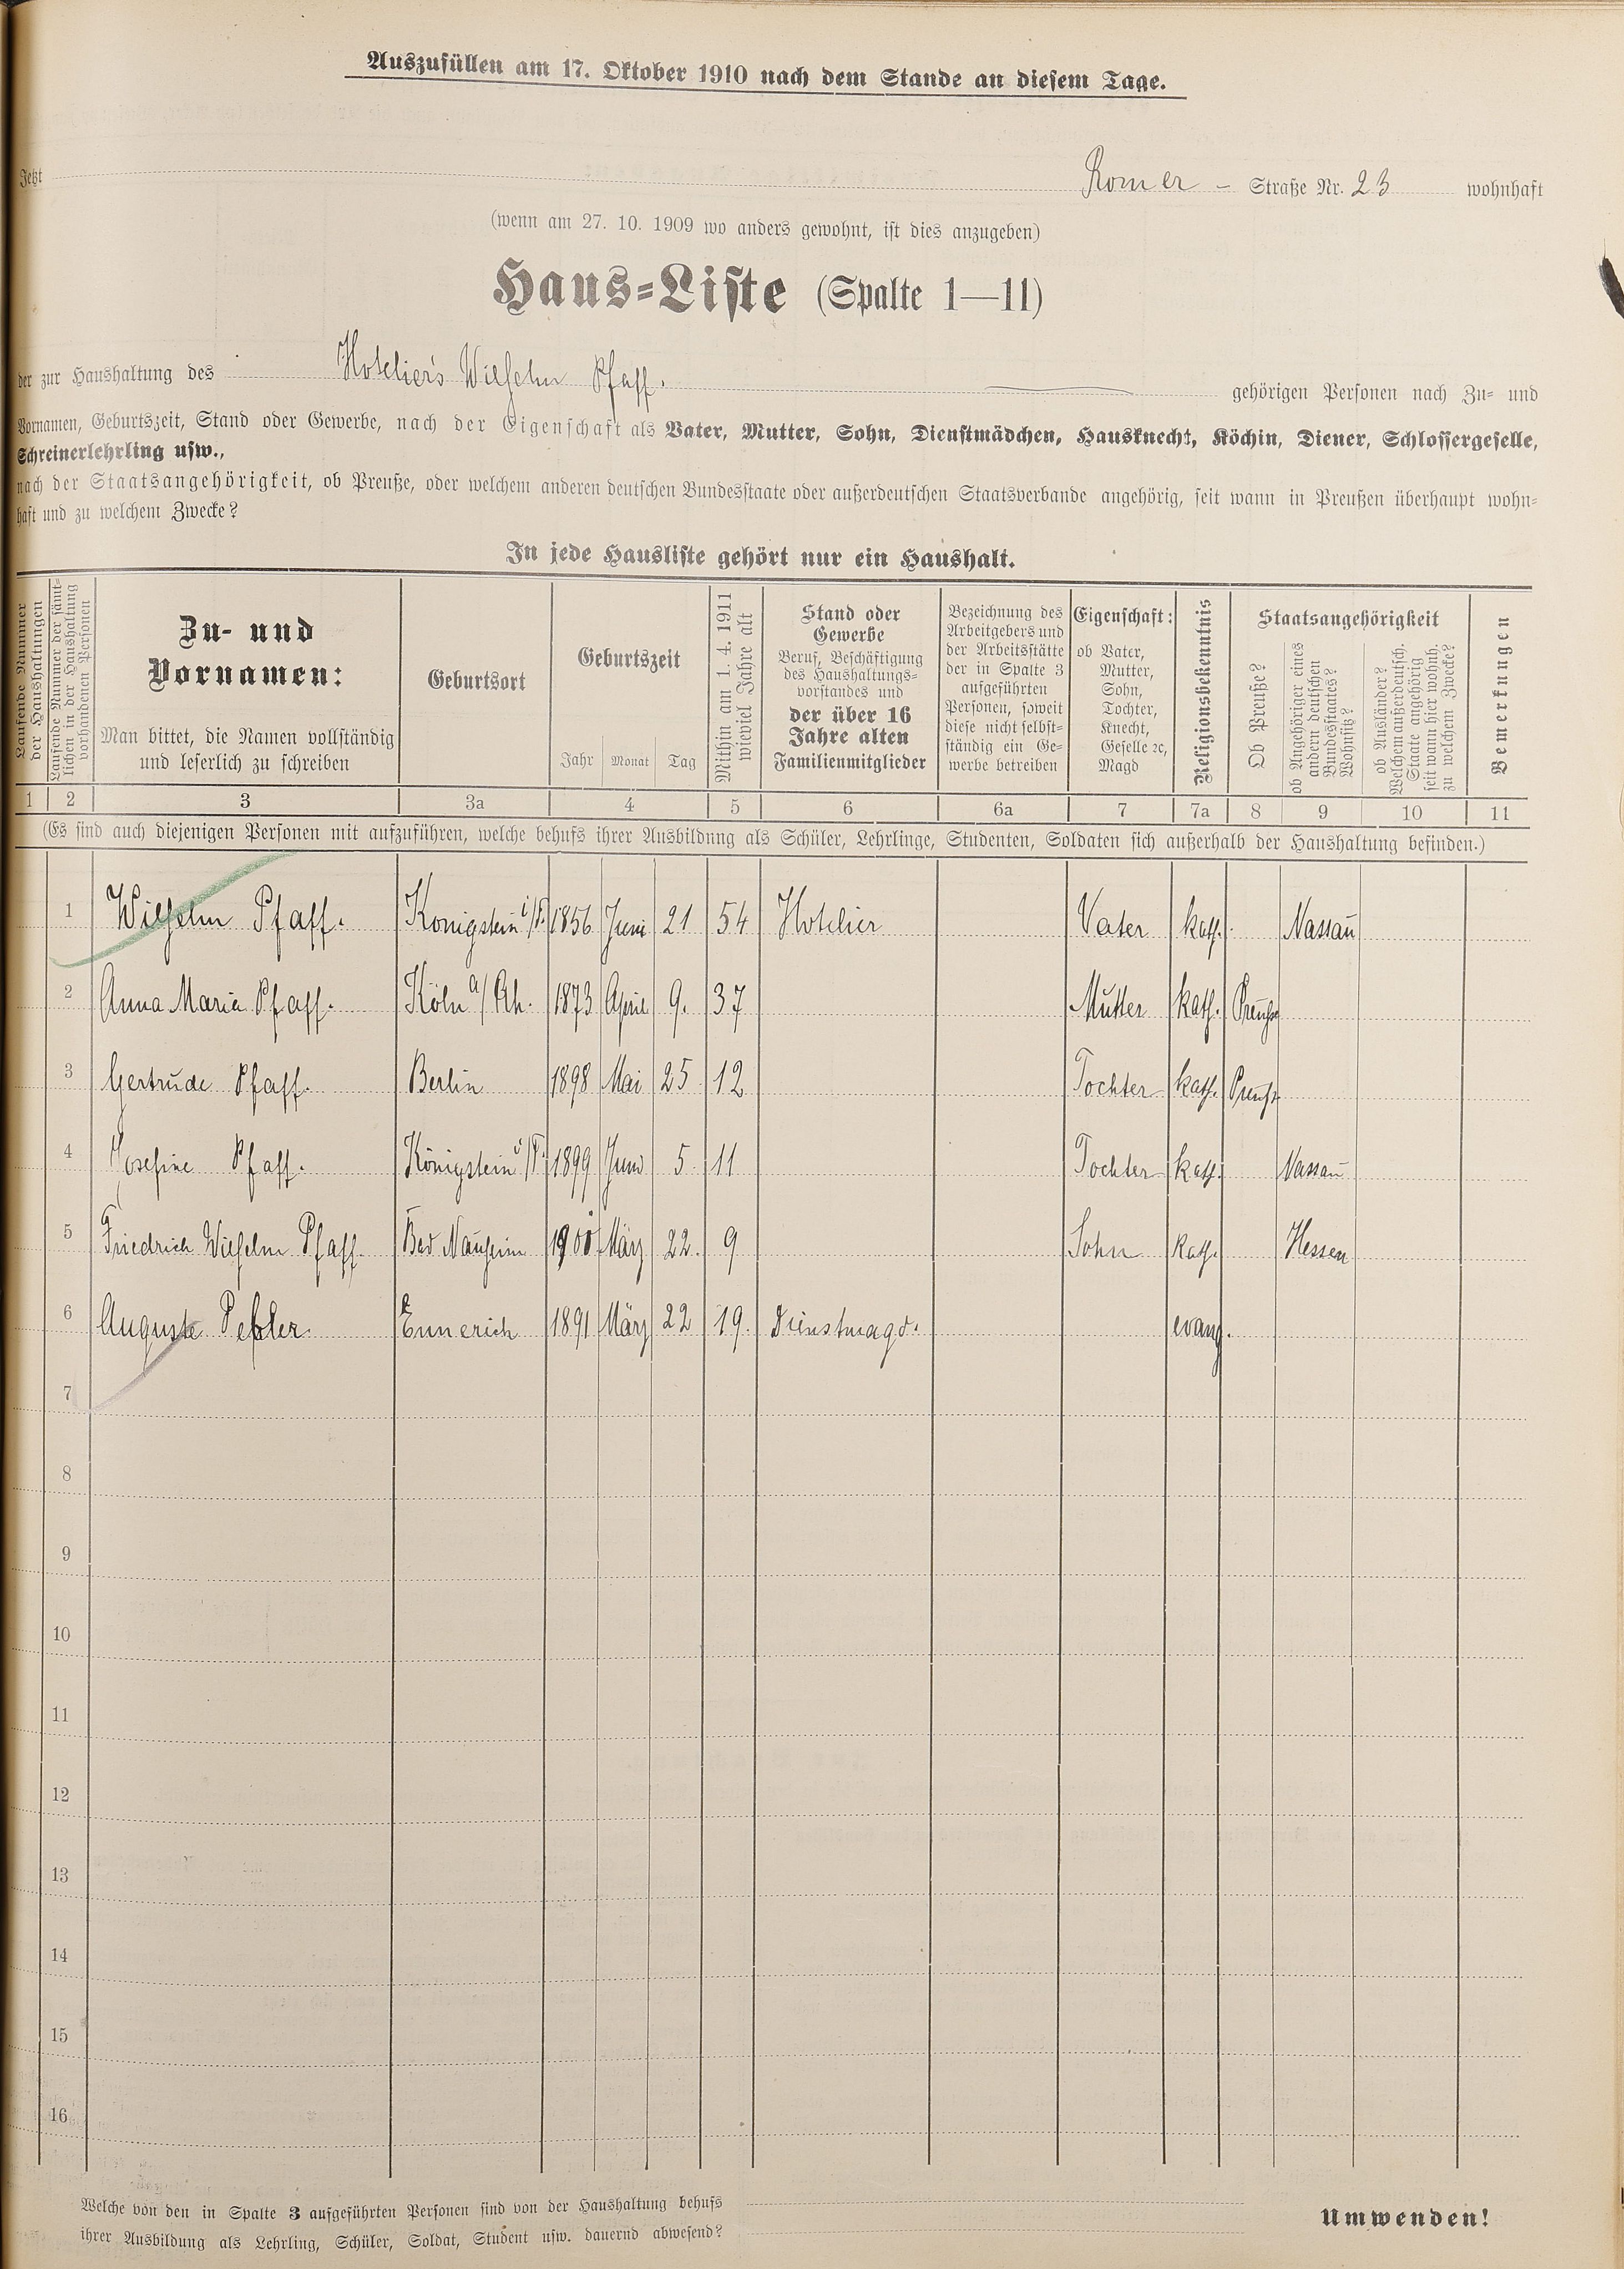 Auszufüllen am 17. Oktober 1910 nach dem Stande an diesem Tage.
Jetzt Romer - Straße Nr. 23 wohnhaft
(wenn am 27. 10. 1909 wo anders gewohnt, ist dies anzugeben)
Haus-Liste (Spalte 1—11)
der zur Haushaltung des Hoteliers Wilhelm Pfaff. gehörigen Personen nach Zu- und
Vornamen, Geburtszeit, Stand oder Gewerbe, nach der Eigenschaft als Vater, Mutter, Sohn, Dienstmädchen, Hausknecht, Köchin, Diener, Schlossergeselle,
Schreinerlehrling usw.,
nach der Staatsangehörigkeit, ob Preuße, oder welchem anderen deutschen Bundesstaate oder außerdeutschen Staatsverbande angehörig, seit wann in Preußen überhaupt wohn-
haft und zu welchem Zwecke?
In jede Hausliste gehört nur ein Haushalt.
Laufende Nummer
der Haushaltungen
Laufende Nummer der sämt-
lichen in der Haushaltung
vorhandenen Personen
Zu- und
Vornamen:
Man bittet, die Namen vollständig
und leserlich zu schreiben
Geburtsort
Geburtszeit
Jahr Monat Tag
Mithin am 1. 4. 1911
wieviel Jahre alt
Stand oder
Gewerbe
Beruf, Beschäftigung
des Haushaltungs-
vorstandes und
der über 16
Jahre alten
Familienmitglieder
Bezeichnung des
Arbeitgebers und
der Arbeitsstätte
der in Spalte 3
aufgeführten
Personen, soweit
diese nicht selbst-
ständig ein Ge-
werbe betreiben
Eigenschaft:
ob Vater,
Mutter,
Sohn,
Tochter,
Knecht,
Geselle ꝛc,
Magd
Religionsbekenntnis
Staatsangehörigkeit
Ob Preuße?
ob Angehöriger eines
andern deutschen
Bundesstaates?
Wohnsitz?
ob Ausländer?
Welchem außerdeutsch.
Staate angehörig
seit wann hier wohnh.
zu welchem Zwecke?
Bemerkungen
1 2 3 3a 4 5 6 6a 7 7a 8 9 10 11
(Es sind auch diejenigen Personen mit aufzuführen, welche behufs ihrer Ausbildung als Schüler, Lehrlinge, Studenten, Soldaten sich außerhalb der Haushaltung befinden.)
1 Wilhelm Pfaff. Konigstein i/T. 1856 Juni 21 54 Hotelier Vater kath. Nassau
2 Anna Maria Pfaff. Köln a/Rh. 1873 April 9. 37 Mutter kath. Preuße
3 Gertrude Pfaff. Berlin 1898 Mai 25 12 Tochter kath. Preuße
4 Josefine Pfaff. Königstein i/T. 1899 Juni 5 11 Tochter kath. Nassau
5 Friedrich Wilhelm Pfaff. Bad Nauheim 1901 März 22. 9 Sohn kath. Hessen
6 Auguste Ennerich 1891 März 22 19. Dienstmagd. evang.
7
8
9
10
11
12
13
14
15
16
Welche von den in Spalte 3 aufgeführten Personen sind von der Haushaltung behufs
ihrer Ausbildung als Lehrling, Schüler, Soldat, Student usw. dauernd abwesend?
Umwenden!